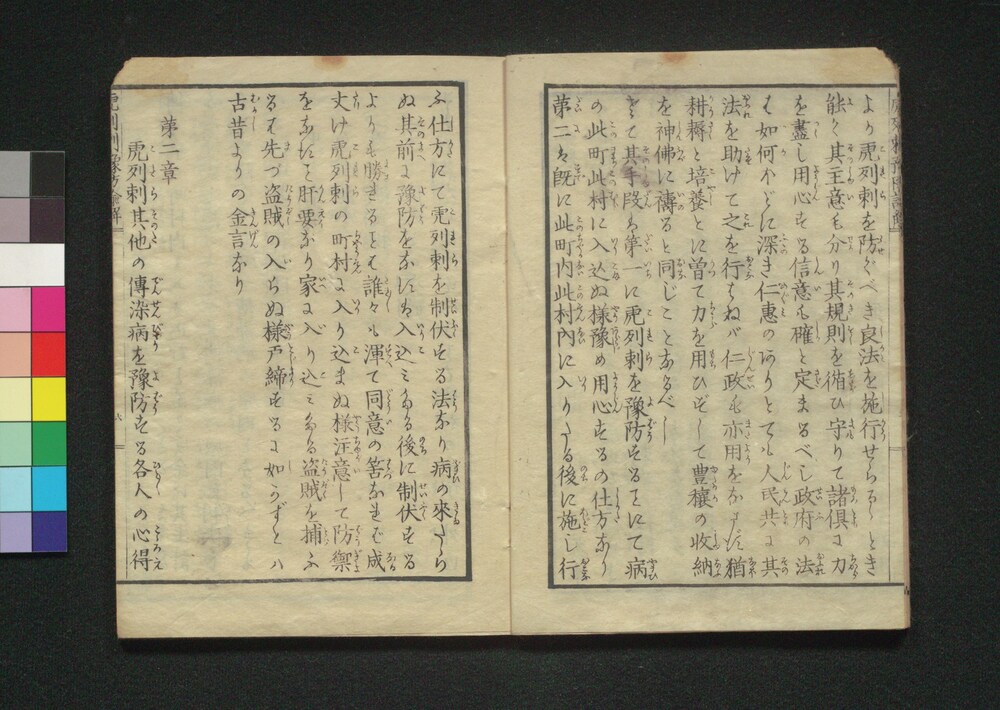 より虎列剌を防ぐべき良法を施行せらるゝとき
能く其主意も分り其規則を循ひ守りて諸倶に力
を盡し用心する信意も確と定まるべし政府の法
も如何ほどに深き仁惠のありとても人民共に其
法を助けて之を行はねバ仁政も亦用をなさず猶
耕耨と培養とに曽て力を用ひずして豊穰の收納
を神佛に禱ると同じことあるべし
さて其手段も第一に虎列剌を豫防することにて病
の此町此村に入込ぬ樣豫め用心するの仕方なり
第二は既に此町内此村內に入りたる後に施し行
ふ仕方にて虎列剌を制伏する法なり病の來たら
ぬ其前に豫防をなすは入込みたる後に制伏する
よりも勝れることは誰々も渾て同意の筈なれば成
丈け虎列剌の町村に入り込まぬ樣注意して防禦
をなすこそ肝要なり家に入り込みたる盗賊を捕ふ
るは先づ盗賊の入らぬ樣戸締するに如かずとハ
古昔よりの金言なり
第二章
虎列剌其他の傳染病を豫防する各人の心得